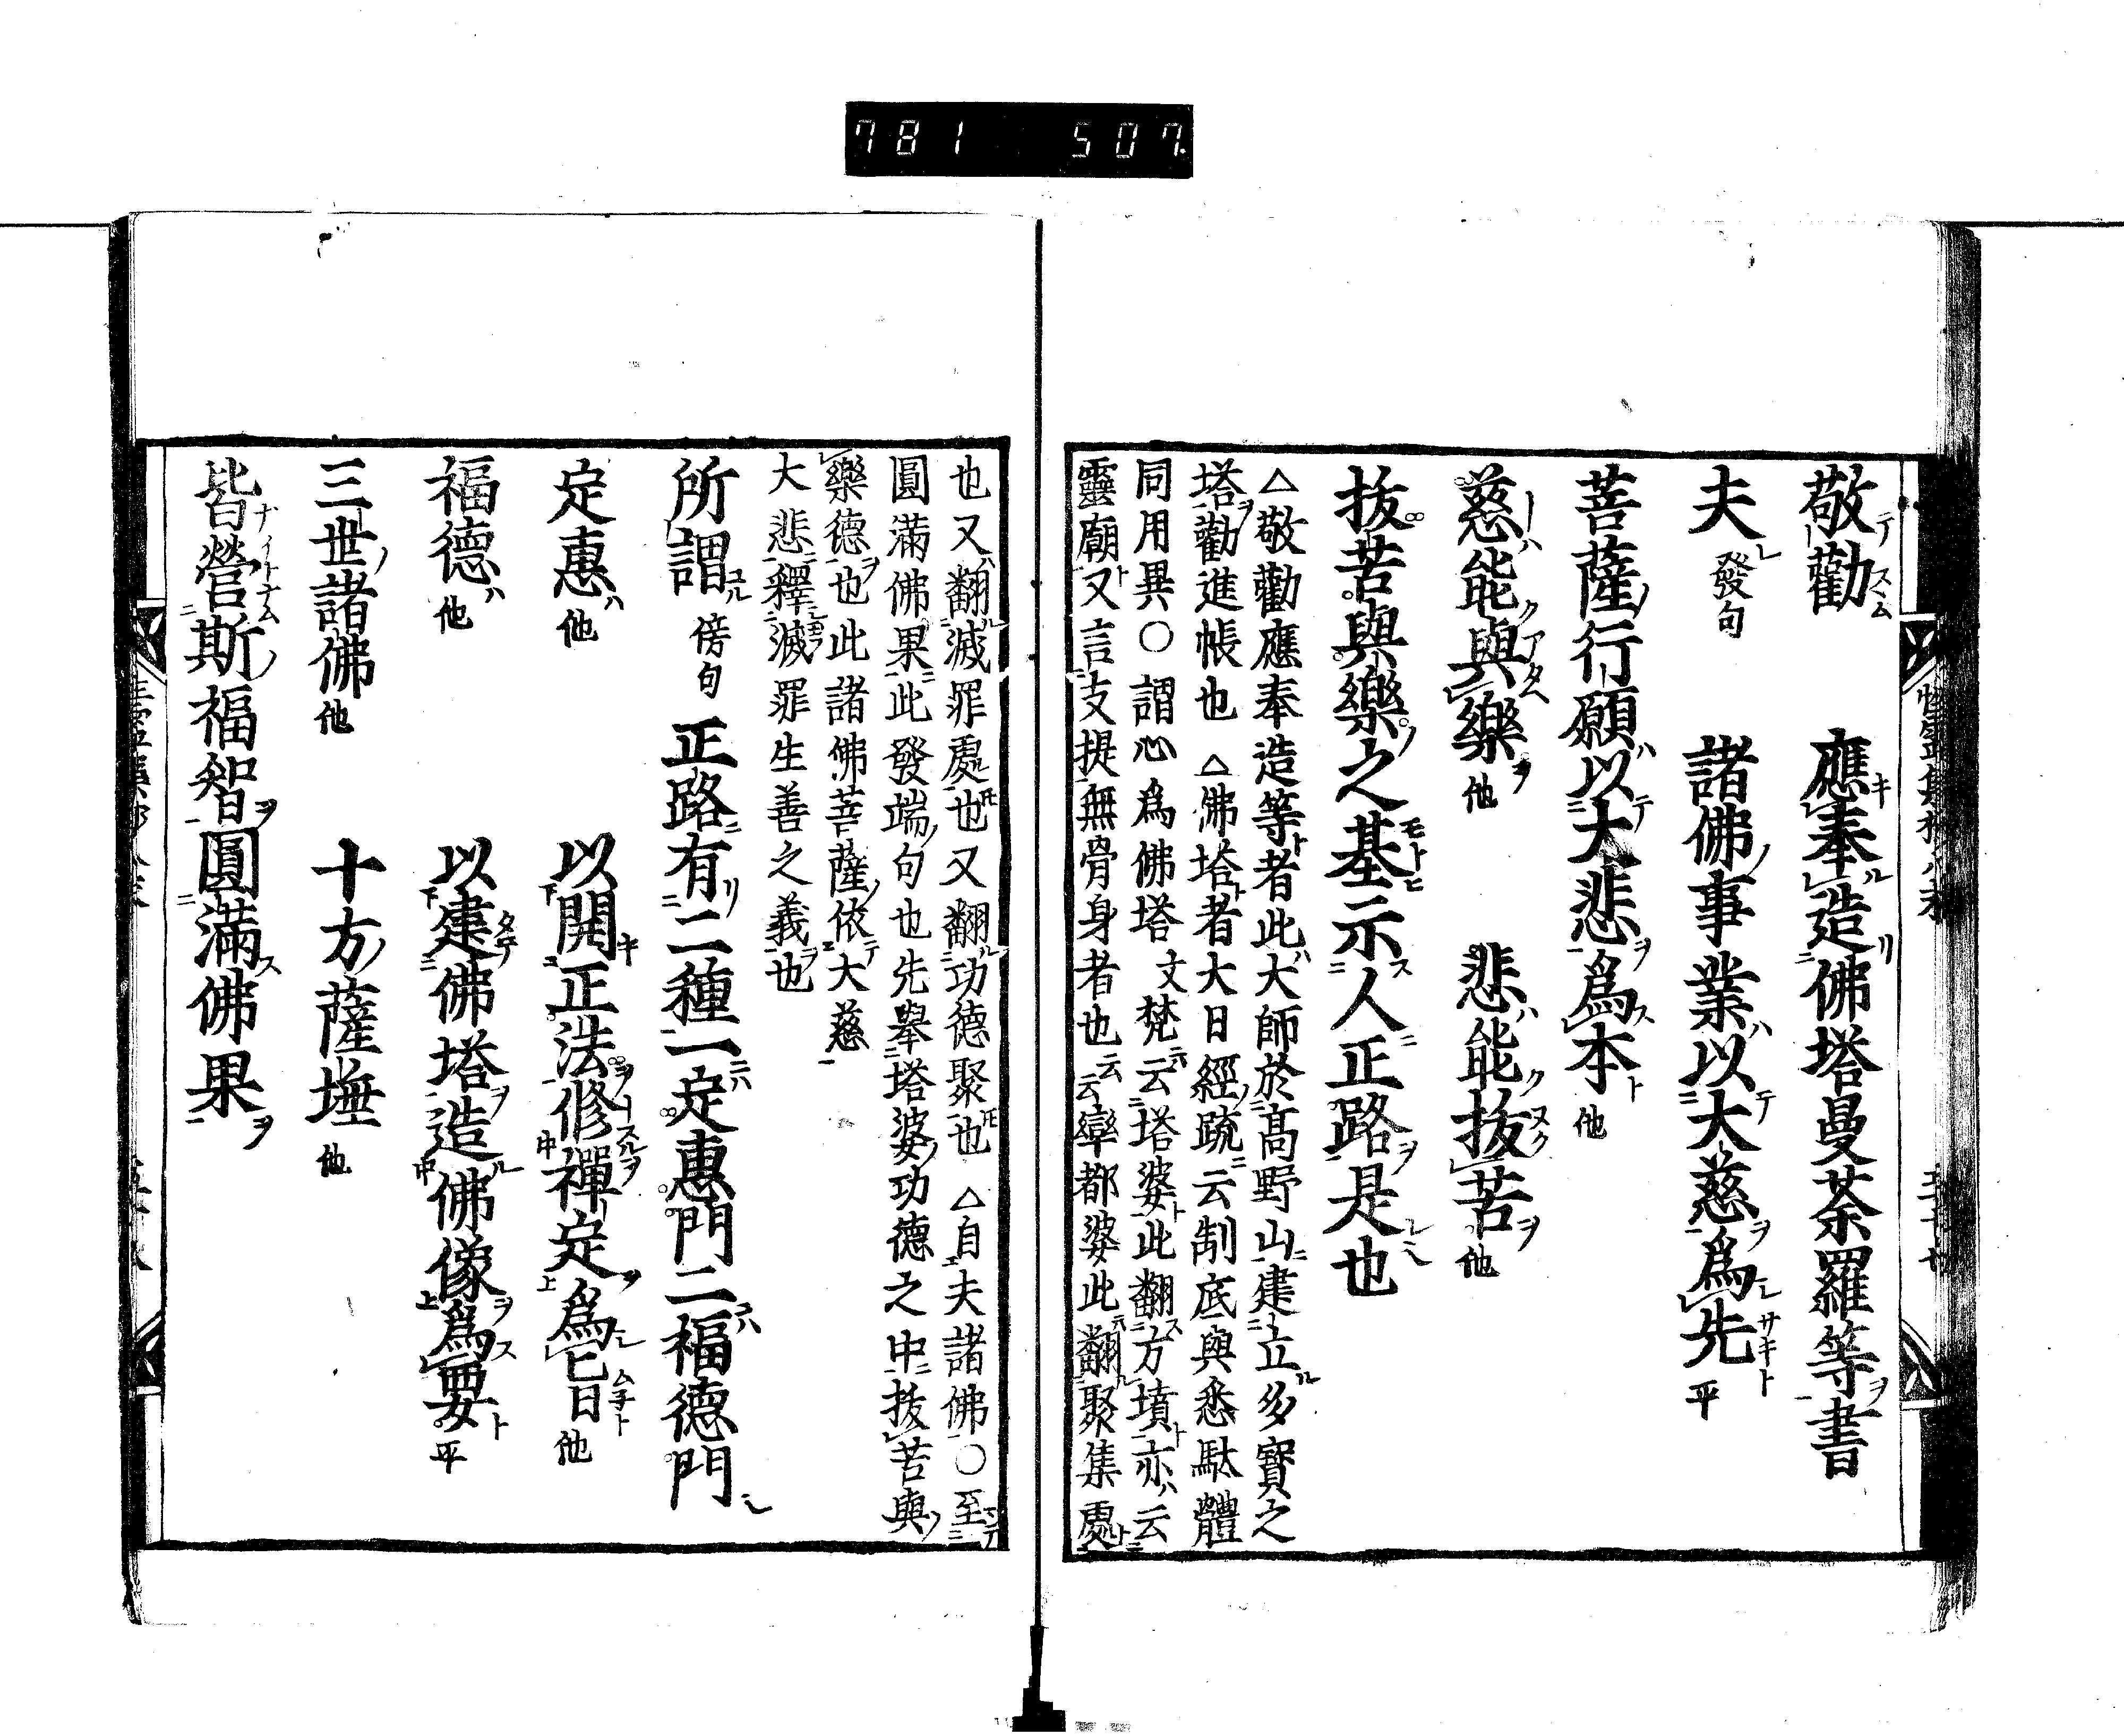 781 507.
敬勸 應奉造佛塔曼荼羅等書
夫 發句 諸佛事業以大慈爲先 平
菩薩行願以大悲爲本 他
慈能與樂 他 悲能抜苦 他
抜苦與樂之基示人正路是也
△敬勸應奉造等者此大師於高野山建立多寳之
塔勸進帳也 △佛塔者大日經疏云制底與悉駄體
同用異○謂心爲佛塔 文 梵云塔婆此翻方墳亦云
靈廟又言支提無骨身者也 云云 窣都婆此翻聚集處
也又翻滅罪處也又翻功德聚也 △自夫諸佛○至
圓滿佛果此發端句也先擧塔婆功德之中抜苦與
樂德也此諸佛菩薩依大慈
大悲釋滅罪生善之義也
所謂 傍句 正路有二種一定惠門二福德門
定惠 他 以開正法修禪定爲旨 他
福德 他 以建佛塔造佛像爲要 平
三世諸佛 他 十方薩埵 他
皆營斯福智圓滿佛果